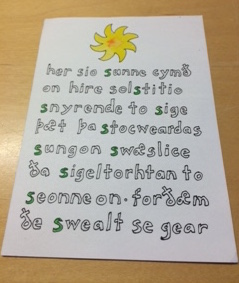 her sio sunne cymð
on hire solstitio
snyrende to sige
þæt þa stocweardas
sungon swæslice
ða sigeltorhtan to
seonneon· forðæm
ðe swealt se gear